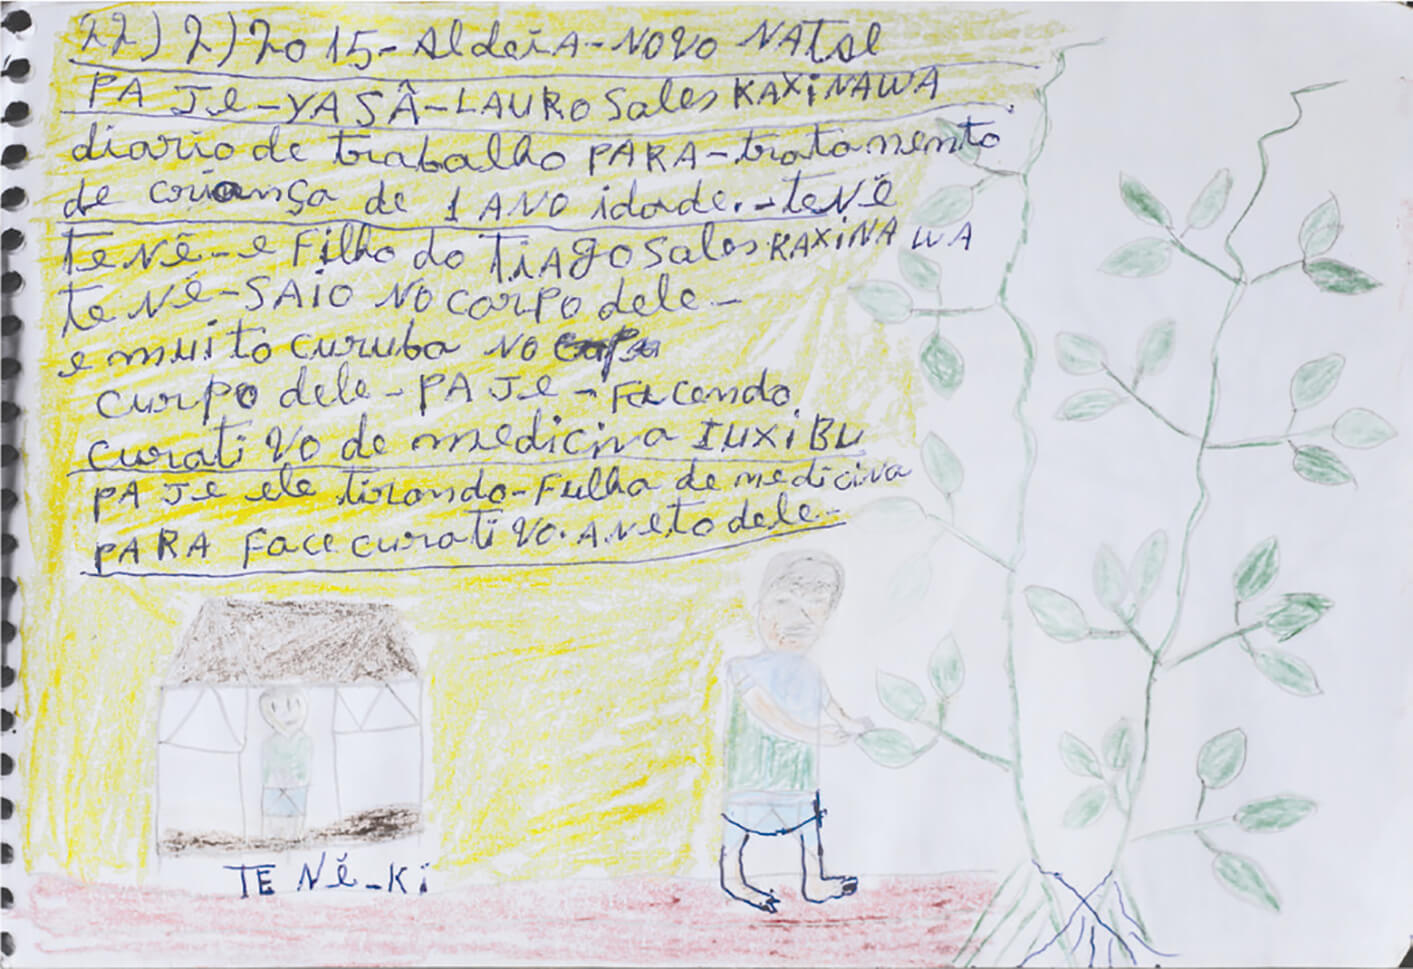 22)2)2015-AldeiA-NOVO NATAl
PAJe-YASÂ-LAURO Sales KAXiNAWA
diario de trabalho PARA-tratamento
de criança de 1 ANO idade.-teNẼ
TeNẼ-e Filho do TiAgo Sales KAXiNAWA
teNẼ-SAIO NO CORPO dele-
e muito curuba NO
curpo dele-PAJe-Facendo
curativo de mediciva IUXiBU
PAJe ele tirando-Fulha de mediciva
PARA Face curativo. A Neto dele-
TENẼ-Ki